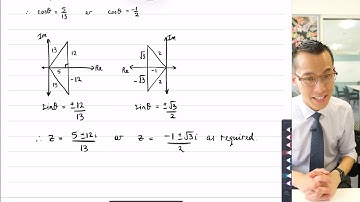 ∴ cosθ = 5/13 or cosθ = -1/2
Im Im
13 12 √3 2
5 Re Re -1
13 -12 -√3 2
sinθ = ±12/13 sinθ = ±√3/2
∴ z = 5±12i/13 or z = -1±√3i/2 as required.